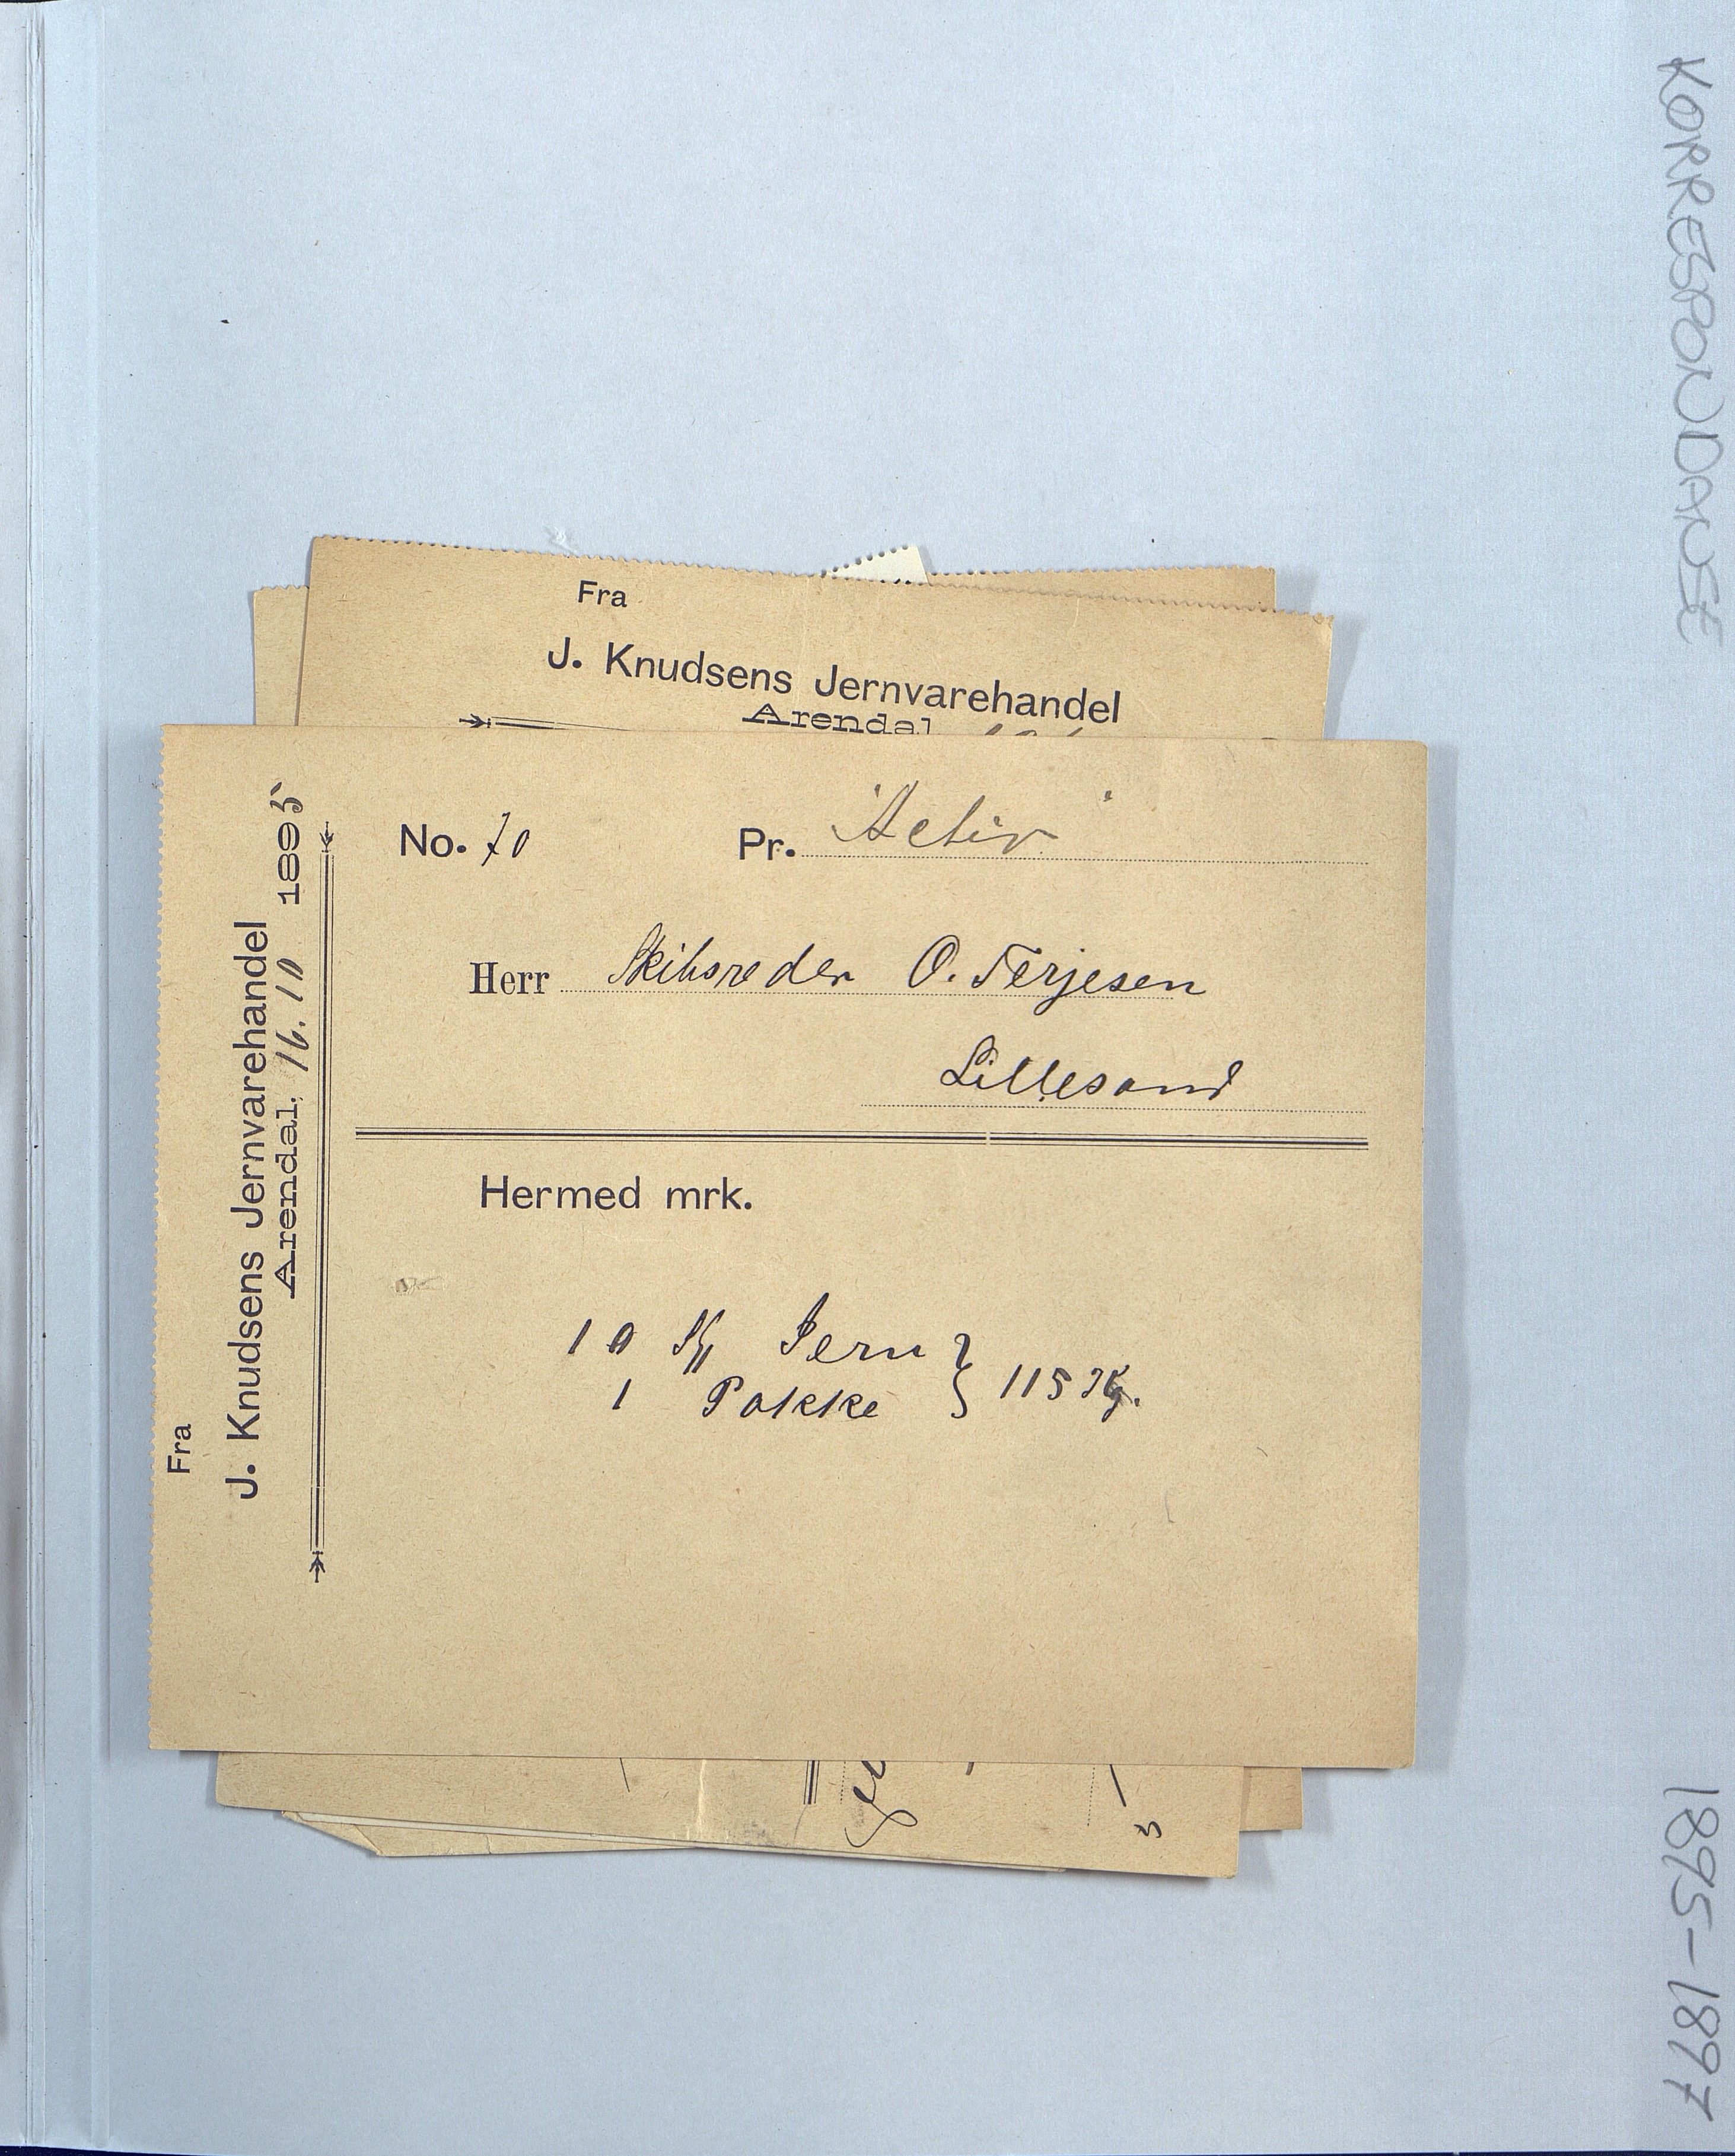 KORRESPONDANSE
1895-1897
Fra
J. Knudsens Jernvarehandel
Arendal
Fra
J. Knudsens Jernvarehandel
Arendal, 16.10 1895
No. 70 Pr. "Activ"
Herr Skibsreder O. Terjesen
Lillesand
Hermed mrk.
10 Jern
1 Pakke } 115 Kg.